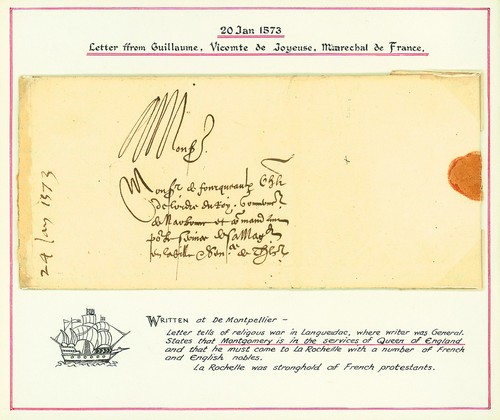 20 Jan 1573
Letter ffrom Guillaume, Vicomte de Joyeuse, Marechal de France.
Mons.r
Monsr de fourquevaulx
de lordre du Roy, Gouverneur
de Narbonne et
24 Jan 1573
WRITTEN at De Montpellier –
Letter tells of religous war in Languedoc, where writer was General.
States that Montgomery is in the services of Queen of England
and that he must come to La Rochelle with a number of French
and English nobles.
La Rochelle was stronghold of French protestants.